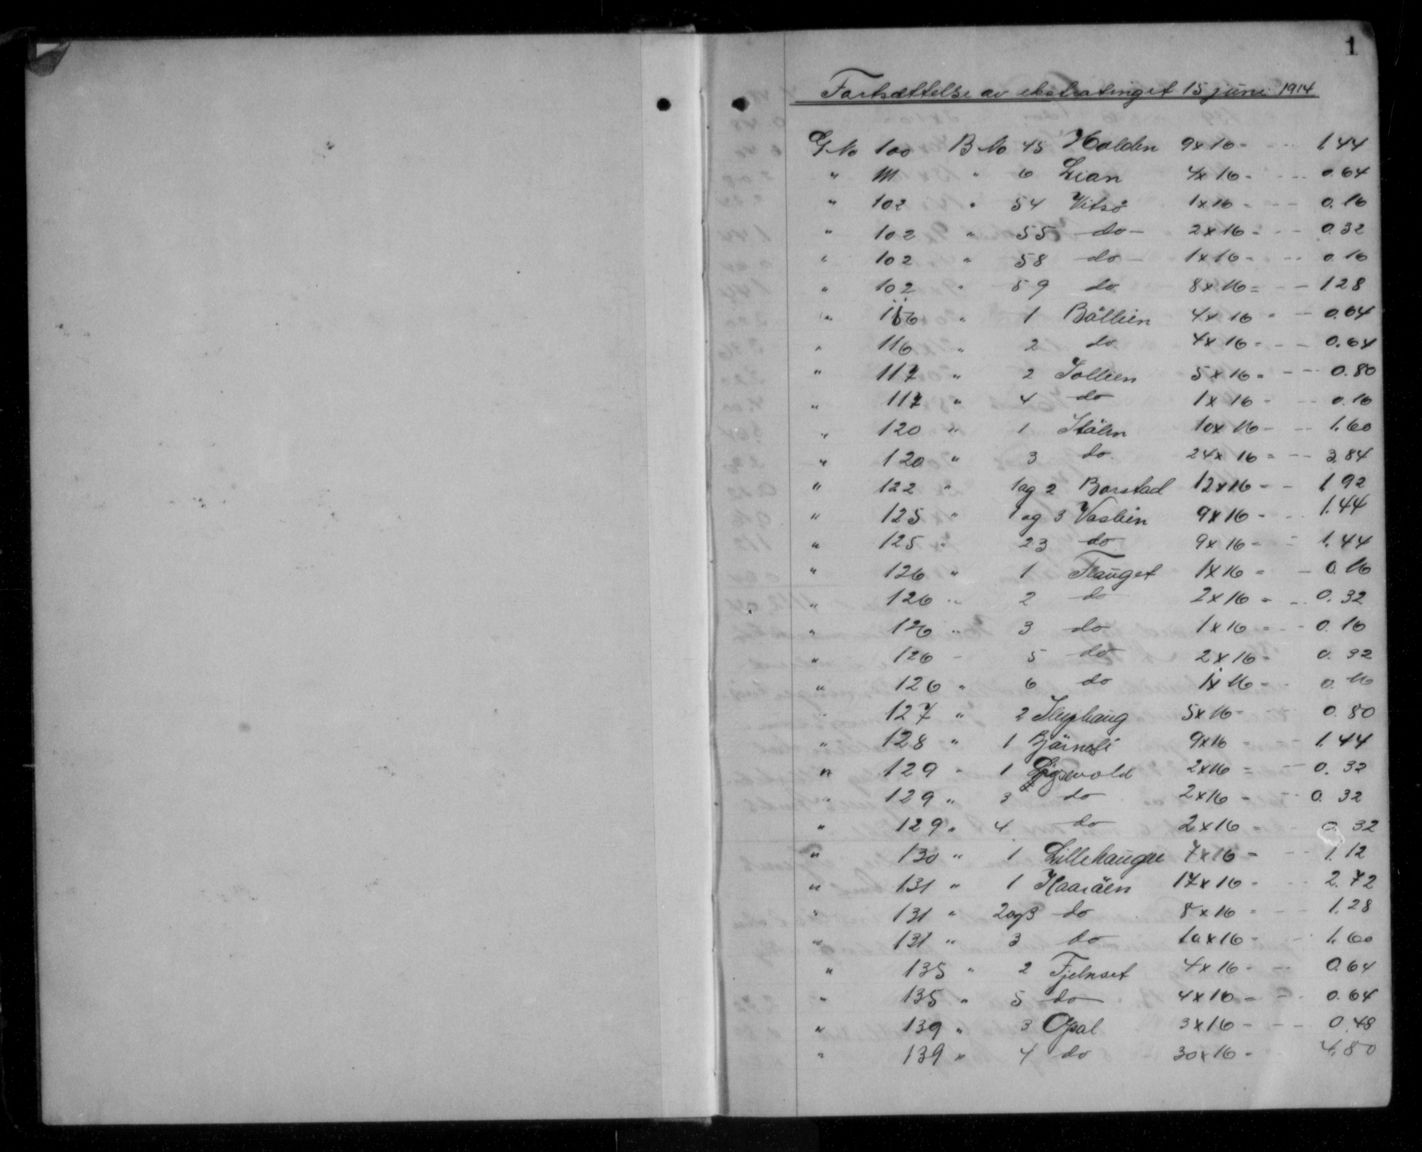 1
Fortsættelse av ekstratinget 15 juni 1914
G No 100 B No 45 Holden 9x16 - - - 1.44
" 111 " 6 Lian 4x16 - - - 0.64
" 102 " 54 Vitsö 1x16 - - - 0.16
" 102 " 55 do 2x16 - - - 0.32
" 102 " 58 do 1x16 - - - 0.16
" 102 " 59 do 8x16 = - - 1.28
" 116 " 1 Bållien 4x16 - - 0.64
" 116 " 2 do 4x16 - - - 0.64
" 117 " 2 Sollien 5x16 - - - 0.80
" 117 " 4 do 1x16 - - - 0.16
" 120 " 1 Stålen 10x16 - - - 1.60
" 120 " 3 do. 24x16 - - - 3.84
" 122 " 1 og 2 Borstad 12x16 - - 1.92
" 125 " 1 og 3 Vaslien 9x16 - - 1.44
" 125 " 23 do 9x16 - - 1.44
" 126 " 1 Flauget 1x16 - - 0.16
" 126 " 2 do 2x16 - - 0.32
" 126 " 3 do 1x16 - - - 0.16
" 126 - 5 do 2x16 - 0.32
" 126 " 6 do 1x16 - - 0.16
" 127 " 2 5x16 - 0.80
" 128 " 1 9x16 - 1.44
" 129 " 1 2x16 = - 0.32
" 129 " 3 do 2x16 - - 0.32
" 129 " 4 do 2x16 - 0.32
" 130 " 1 Lillehaugen 7x16 - - - 1.12
" 131 " 1 Haaråen 17x16 - - - 2.72
" 131 " 2 og 3 do 8x16 - - - 1.28
" 131 " 3 do 10x16 - - 1.60
" 135 " 2 Fjelnset 4x16 - - - 0.64
" 135 " 5 do 4x16 - = - 0.64
" 139 " 3 Opal 3x16 - - - 0.48
" 139 " 4 do 30x16 - - 4.80